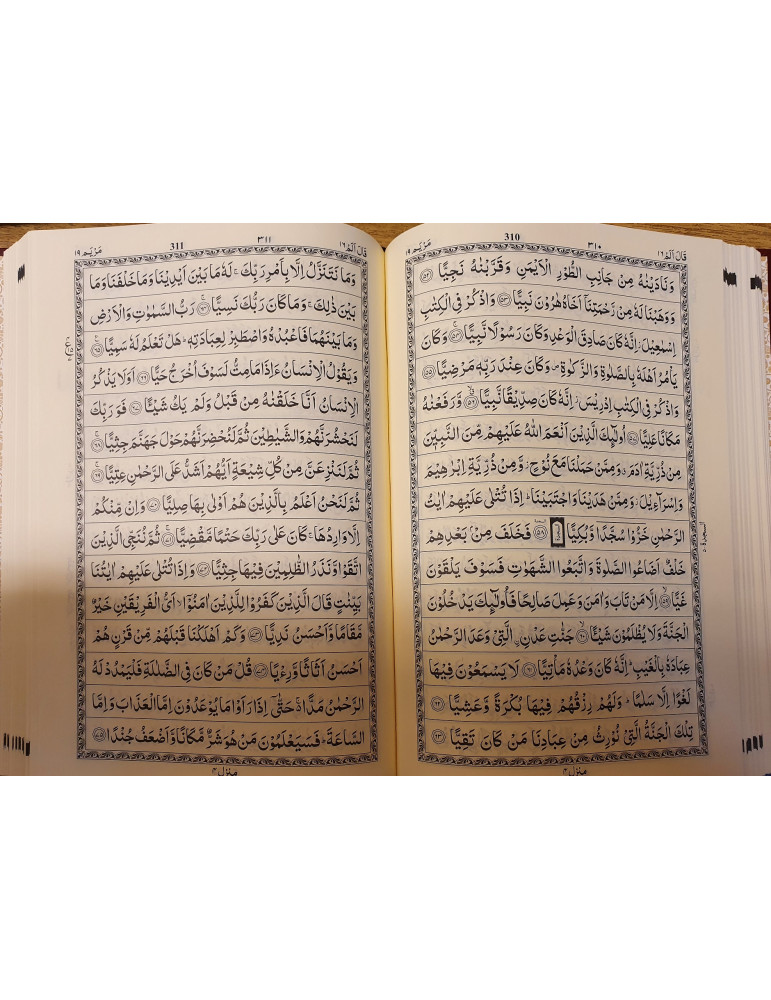 قَالَ اَلَمْ ١٦ ٣١٠ 310 مَرْيَم ١٩
وَنَادَيْنٰهُ مِنْ جَانِبِ الطُّوْرِ الْاَيْمَنِ وَقَرَّبْنٰهُ نَجِيًّا ﴿٥٢﴾
وَوَهَبْنَا لَهٗ مِنْ رَّحْمَتِنَآ اَخَاهُ هٰرُوْنَ نَبِيًّا ﴿٥٣﴾ وَاذْكُرْ فِى الْكِتٰبِ
اِسْمٰعِيْلَ ز اِنَّهٗ كَانَ صَادِقَ الْوَعْدِ وَكَانَ رَسُوْلًا نَّبِيًّا ﴿٥٤﴾ وَكَانَ
يَاْمُرُ اَهْلَهٗ بِالصَّلٰوةِ وَالزَّكٰوةِ ص وَكَانَ عِنْدَ رَبِّهٖ مَرْضِيًّا ﴿٥٥﴾
وَاذْكُرْ فِى الْكِتٰبِ اِدْرِيْسَ ز اِنَّهٗ كَانَ صِدِّيْقًا نَّبِيًّا ﴿٥٦﴾ وَّرَفَعْنٰهُ
مَكَانًا عَلِيًّا ﴿٥٧﴾ اُولٰٓئِكَ الَّذِيْنَ اَنْعَمَ اللّٰهُ عَلَيْهِمْ مِّنَ النَّبِيّٖنَ
مِنْ ذُرِّيَّةِ اٰدَمَ ق وَمِمَّنْ حَمَلْنَا مَعَ نُوْحٍ ز وَّمِنْ ذُرِّيَّةِ اِبْرٰهِيْمَ
وَاِسْرَآءِيْلَ ز وَمِمَّنْ هَدَيْنَا وَاجْتَبَيْنَا ط اِذَا تُتْلٰى عَلَيْهِمْ اٰيٰتُ
الرَّحْمٰنِ خَرُّوْا سُجَّدًا وَّبُكِيًّا ﴿٥٨﴾ فَخَلَفَ مِنْۢ بَعْدِهِمْ
خَلْفٌ اَضَاعُوا الصَّلٰوةَ وَاتَّبَعُوا الشَّهَوٰتِ فَسَوْفَ يَلْقَوْنَ
غَيًّا ﴿٥٩﴾ اِلَّا مَنْ تَابَ وَاٰمَنَ وَعَمِلَ صَالِحًا فَاُولٰٓئِكَ يَدْخُلُوْنَ
الْجَنَّةَ وَلَا يُظْلَمُوْنَ شَيْئًا ﴿٦٠﴾ جَنّٰتِ عَدْنِ ࣙالَّتِىْ وَعَدَ الرَّحْمٰنُ
عِبَادَهٗ بِالْغَيْبِ ط اِنَّهٗ كَانَ وَعْدُهٗ مَاْتِيًّا ﴿٦١﴾ لَا يَسْمَعُوْنَ فِيْهَا
لَغْوًا اِلَّا سَلٰمًا ط وَلَهُمْ رِزْقُهُمْ فِيْهَا بُكْرَةً وَّعَشِيًّا ﴿٦٢﴾
تِلْكَ الْجَنَّةُ الَّتِىْ نُوْرِثُ مِنْ عِبَادِنَا مَنْ كَانَ تَقِيًّا ﴿٦٣﴾
منزل ٤
قَالَ اَلَمْ ١٦ ٣١١ 311 مَرْيَم ١٩
وَمَا نَتَنَزَّلُ اِلَّا بِاَمْرِ رَبِّكَ ج لَهٗ مَا بَيْنَ اَيْدِيْنَا وَمَا خَلْفَنَا وَمَا
بَيْنَ ذٰلِكَ ج وَمَا كَانَ رَبُّكَ نَسِيًّا ﴿٦٤﴾ رَبُّ السَّمٰوٰتِ وَالْاَرْضِ
وَمَا بَيْنَهُمَا فَاعْبُدْهُ وَاصْطَبِرْ لِعِبَادَتِهٖ ط هَلْ تَعْلَمُ لَهٗ سَمِيًّا ﴿٦٥﴾
وَيَقُوْلُ الْاِنْسَانُ ءَاِذَا مَا مِتُّ لَسَوْفَ اُخْرَجُ حَيًّا ﴿٦٦﴾ اَوَلَا يَذْكُرُ
الْاِنْسَانُ اَنَّا خَلَقْنٰهُ مِنْ قَبْلُ وَلَمْ يَكُ شَيْئًا ﴿٦٧﴾ فَوَرَبِّكَ
لَنَحْشُرَنَّهُمْ وَالشَّيٰطِيْنَ ثُمَّ لَنُحْضِرَنَّهُمْ حَوْلَ جَهَنَّمَ جِثِيًّا ﴿٦٨﴾
ثُمَّ لَنَنْزِعَنَّ مِنْ كُلِّ شِيْعَةٍ اَيُّهُمْ اَشَدُّ عَلَى الرَّحْمٰنِ عِتِيًّا ﴿٦٩﴾
ثُمَّ لَنَحْنُ اَعْلَمُ بِالَّذِيْنَ هُمْ اَوْلٰى بِهَا صِلِيًّا ﴿٧٠﴾ وَاِنْ مِّنْكُمْ
اِلَّا وَارِدُهَا ج كَانَ عَلٰى رَبِّكَ حَتْمًا مَّقْضِيًّا ﴿٧١﴾ ثُمَّ نُنَجِّى الَّذِيْنَ
اتَّقَوْا وَّنَذَرُ الظّٰلِمِيْنَ فِيْهَا جِثِيًّا ﴿٧٢﴾ وَاِذَا تُتْلٰى عَلَيْهِمْ اٰيٰتُنَا
بَيِّنٰتٍ قَالَ الَّذِيْنَ كَفَرُوْا لِلَّذِيْنَ اٰمَنُوْٓا لا اَىُّ الْفَرِيْقَيْنِ خَيْرٌ
مَّقَامًا وَّاَحْسَنُ نَدِيًّا ﴿٧٣﴾ وَكَمْ اَهْلَكْنَا قَبْلَهُمْ مِّنْ قَرْنٍ هُمْ
اَحْسَنُ اَثَاثًا وَّرِءْيًا ﴿٧٤﴾ قُلْ مَنْ كَانَ فِى الضَّلٰلَةِ فَلْيَمْدُدْ لَهُ
الرَّحْمٰنُ مَدًّا ج حَتّٰىٓ اِذَا رَاَوْا مَا يُوْعَدُوْنَ اِمَّا الْعَذَابَ وَاِمَّا
السَّاعَةَ ط فَسَيَعْلَمُوْنَ مَنْ هُوَ شَرٌّ مَّكَانًا وَّاَضْعَفُ جُنْدًا ﴿٧٥﴾
منزل ٤